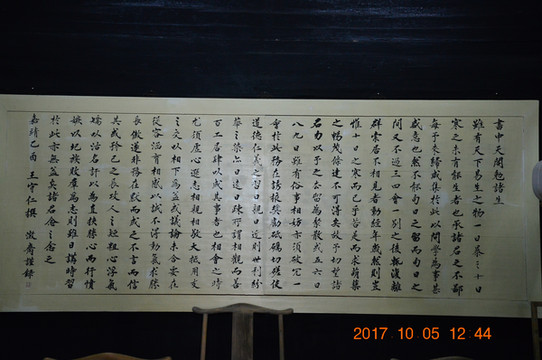 書中天閣勉諸生
雖有天下易生之物一日暴之十日
寒之未有能生者也承諸君之不鄙
每予來歸咸集於此以問學為事甚
盛意也然不能旬日之留而旬日之
間又不過三四會一別之後輒復離
群索居不相見者動經年歲然則豈
惟十日之寒而已乎若是而求萌蘖
之暢茂條達不可得矣故予切望諸
君勿以予之去留為聚散或五六日
八九日雖有俗事相妨亦須破冗一
會於此務在誘掖獎勸砥礪切磋使
道德仁義之習日親日近則世利紛
華之染亦日遠日疎所謂相觀而善
百工居肆以成其事者也相會之時
尤須虛心遜志相親相敬大抵朋友
之交以相下為益或議論未合要在
從容涵育相感以誠不得動氣求勝
長傲遂非務在默而成之不言而信
其或矜己之長攻人之短粗心浮氣
矯以沽名訐以為直挾勝心而行憤
嫉以圮族敗群為志則雖日講時習
於此亦無益矣諸君念之念之
嘉靖乙酉 王守仁撰
2017 10 05 12:44